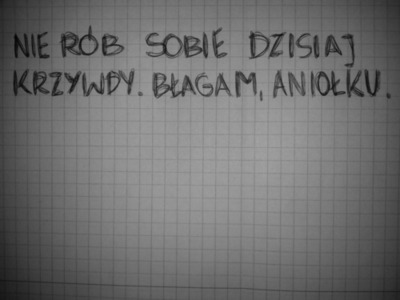 NIE RÓB SOBIE DZISIAJ
KRZYWDY. BŁAGAM, ANIOŁKU.